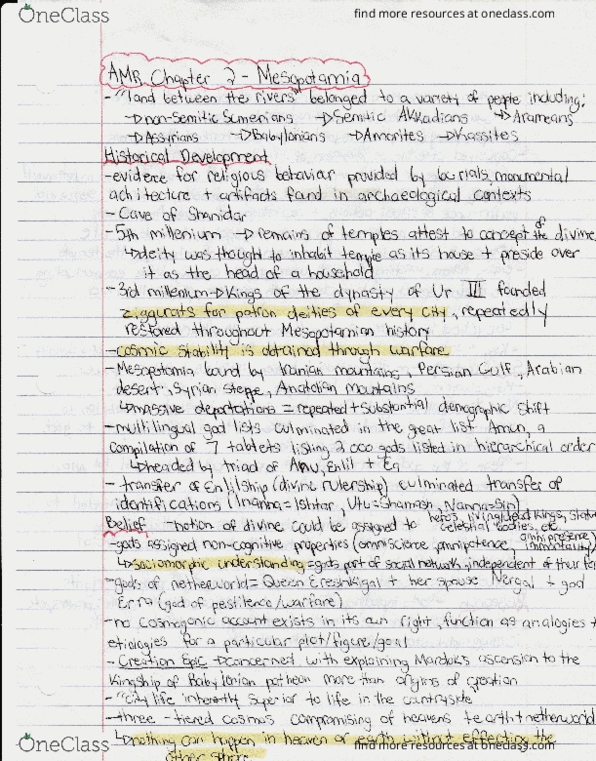 OneClass
find more resources at oneclass.com
AMR Chapter 2 - Mesopotamia
- "land between the rivers" belonged to a variety of people including:
→ non-Semitic Sumerians → Semitic Akkadians → Arameans
→ Assyrians → Babylonians → Amorites → Kassites
Historical Development
- evidence for religious behaviar provided by burials, monumental
achitecture + artifacts found in archaeological contexts
- Cave of Shanidar
- 5th millenium → remains of temples attest to concept of the divine
↳ deity was thought to inhabit temple as its house + preside over
it as the head of a household
- 3rd millenium → Kings of the dynasty of Ur III founded
ziggurats for patron deities of every city, repeatedly
restored throughout Mesopotamian history
- cosmic stability is obtained through warfare
- Mesopotamia bound by Iranian mountains, Persian Gulf, Arabian
desert, Syrian steppe, Anatolian mountains
↳ massive deportations = repeated + substantial demographic shift
- multilingual god lists culminated in the great list Amun, a
compilation of 7 tablets listing 2 000 gods listed in hierarchical order
↳ headed by triad of Anu, Enlil + Ea
- transfer of Enlilship (divine rulership) culminated transfer of
identifications (Inanna = Ishtar, Utu = Shamash, Nanna = Sin)
Belief - notion of divine could be assigned to heros, living/dead kings,
celestial bodies, etc.
- gods assigned non-cognitive properties (omniscience, omnipotence, omnipresence, immortality)
↳ sociomorphic understanding = gods part of social network, independent of their
- gods of netherworld = Queen Ereshkigal + her spouse Nergal + god
Erra (god of pestilence/warfare)
- no cosmogonic account exists in its own right, function as analogies +
etiologies for a particular plot/figure/goal
- Creation Epic → concerned with explaining Marduk's ascension to the
Kingship of Babylonian patheon more than origins of creation
- "city life inherently superior to life in the cantryside"
- three-tiered cosmos compromising of heavens + earth + netherworld
↳ nothing can happen in heaven or earth without effecting the
other sphere
OneClass
find more resources at oneclass.com